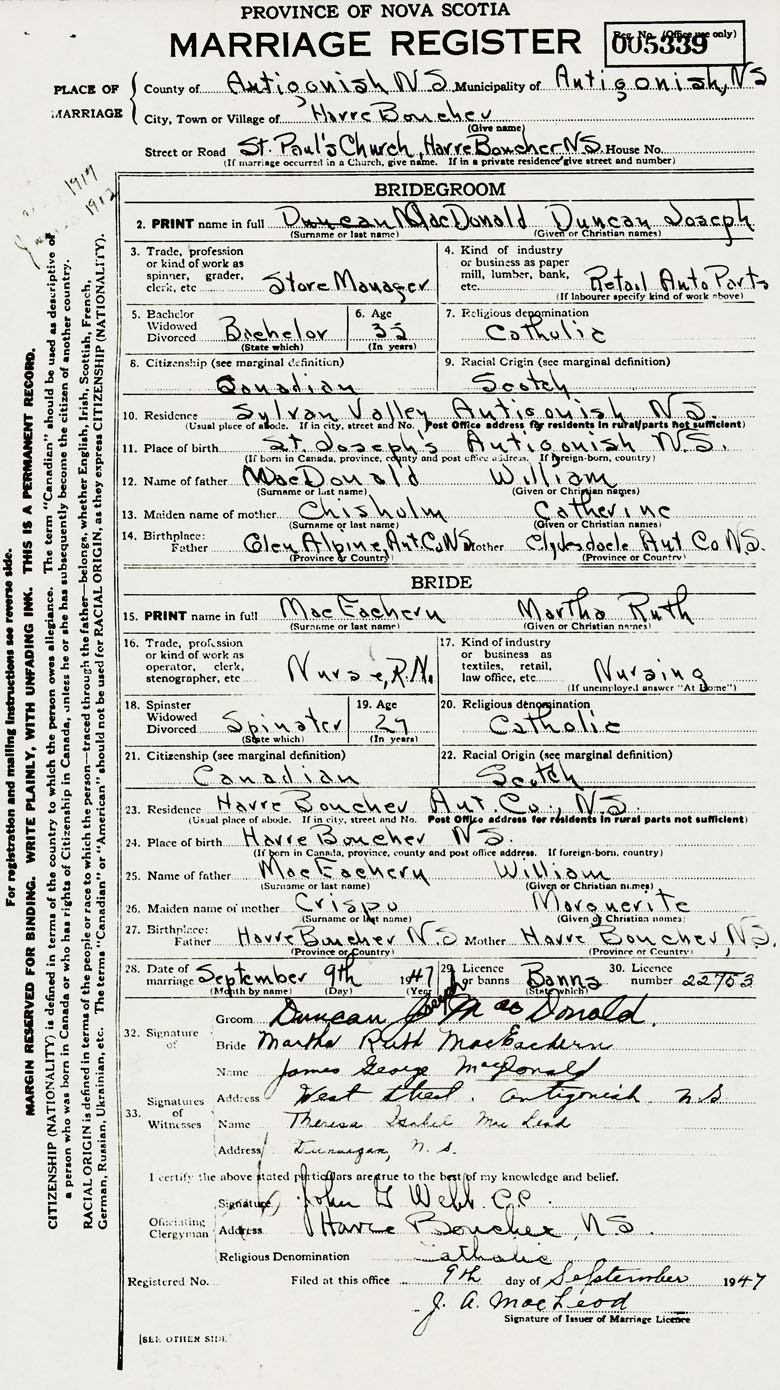 PROVINCE OF NOVA SCOTIA
MARRIAGE REGISTER
Reg. No. (Office use only)
005339
PLACE OF MARRIAGE
County of Antigonish N S Municipality of Antigonish, NS
City, Town or Village of Havre Boucher
(Give name)
Street or Road St. Paul's Church, Havre Boucher N.S. House No.
(If marriage occurred in a Church, give name. If in a private residence give street and number)
1917
1912
BRIDEGROOM
2. PRINT name in full Duncan MacDonald Duncan Joseph
(Surname or last name) (Given or Christian names)
3. Trade, profession or kind of work as spinner, grader, clerk, etc Store Manager
4. Kind of industry or business as paper mill, lumber, bank, etc. Retail Auto Parts
(If labourer specify kind of work above)
5. Bachelor Widowed Divorced Bachelor
(State which)
6. Age 35
(In years)
7. Religious denomination
Catholic
8. Citizenship (see marginal definition)
Canadian
9. Racial Origin (see marginal definition)
Scotch
10. Residence Sylvan Valley Antigonish N.S.
(Usual place of abode. If in city, street and No. Post Office address for residents in rural parts not sufficient)
11. Place of birth St. Joseph's Antigonish N.S.
(If born in Canada, province, county and post office address. If foreign-born, country)
12. Name of father MacDonald William
(Surname or last name) (Given or Christian names)
13. Maiden name of mother Chisholm Catherine
(Surname or last name) (Given or Christian names)
14. Birthplace: Father Glen Alpine, Ant. Co, N.S. Mother Clydesdale Ant Co N.S.
(Province or Country) (Province or Country)
BRIDE
15. PRINT name in full MacEachern Martha Ruth
(Surname or last name) (Given or Christian names)
16. Trade, profession or kind of work as operator, clerk, stenographer, etc Nurse, R.N.
17. Kind of industry or business as textiles, retail, law office, etc. Nursing
(If unemployed answer "At Home")
18. Spinster Widowed Divorced Spinster
(State which)
19. Age 27
(In years)
20. Religious denomination
Catholic
21. Citizenship (see marginal definition)
Canadian
22. Racial Origin (see marginal definition)
Scotch
23. Residence Havre Boucher Ant. Co., N.S.
(Usual place of abode. If in city, street and No. Post Office address for residents in rural parts not sufficient)
24. Place of birth Havre Boucher N.S.
(If born in Canada, province, county and post office address. If foreign-born, country)
25. Name of father MacEachern William
(Surname or last name) (Given or Christian names)
26. Maiden name of mother Crispo Marguerite
(Surname or last name) (Given or Christian names)
27. Birthplace: Father Havre Boucher N.S Mother Havre Boucher, N.S.
(Province or Country) (Province or Country)
28. Date of marriage September 9th 1947
(Month by name) (Day) (Year)
29. Licence or banns Banns
(State which)
30. Licence number 22753
32. Signature of
Groom Duncan Joseph MacDonald.
Bride Martha Ruth MacEachern
33. Signatures of Witnesses
Name James George MacDonald
Address West Street. Antigonish N.S
Name Theresa Isabel Mac Lead
Address N. S.
I certify the above stated particulars are true to the best of my knowledge and belief.
Officiating Clergyman
Signature John G Webb C.C.
Address Havre Boucher, N S.
Religious Denomination Catholic
Registered No. Filed at this office 9th day of September 1947
J. A. MacLeod
Signature of Issuer of Marriage Licence
[SEE OTHER SIDE
For registration and mailing instructions see reverse side.
MARGIN RESERVED FOR BINDING. WRITE PLAINLY, WITH UNFADING INK. THIS IS A PERMANENT RECORD.
CITIZENSHIP (NATIONALITY) is defined in terms of the country to which the person owes allegiance. The term "Canadian" should be used as descriptive of
a person who was born in Canada or who has rights of Citizenship in Canada, unless he or she has subsequently become the citizen of another country.
RACIAL ORIGIN is defined in terms of the people or race to which the person—traced through the father—belongs, whether English, Irish, Scottish, French,
German, Russian, Ukrainian, etc. The terms "Canadian" or "American" should not be used for RACIAL ORIGIN, as they express CITIZENSHIP (NATIONALITY).